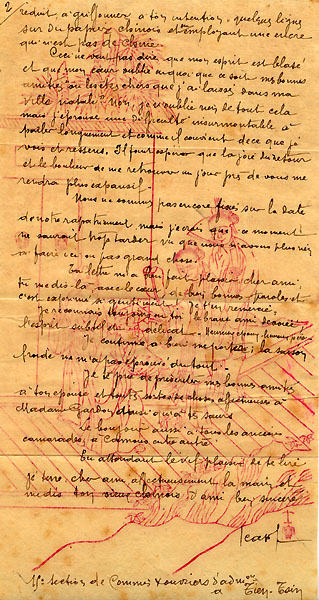 2
réduit à griffonner, à ton intention, quelques lignes
sur du papier chinois et en employant une encre
qui n'est pas de Chine.
Ceci ne veut pas dire que mon esprit est blasé
et que mon cœur oublie en quoi que ce soit mes bonnes
amitiés ou les êtres chers que j'ai laissés dans ma
ville natale. Non, je n'oublie rien de tout cela
mais j'éprouve une difficulté insurmontable à
parler longuement et comme il convient de ce que j'ai
vu et ressenti. Il faut espérer que la joie du retour
et le bonheur de me retrouver un jour près de vous me
rendra plus expansif.
Nous ne sommes pas encore fixés sur la date
de notre rapatriement mais je crois que ce moment
ne saurait trop tarder vu que nous n'avons plus rien
à faire ici ou pas grand chose.
Ta lettre m'a bien fait plaisir cher ami,
tu me dis là avec le cœur de bien bonnes paroles et
c'est exprimé si gentiment
Je reconnais toujours en toi le brave ami
l'esprit subtil et délicat.
Je continue à bien me porter, la saison
froide ne m'a pas éprouvé du tout.
Je te prie de présenter mes bonnes amitiés
à ton épouse et toutes sortes de choses affectueuses à
Madame ainsi qu'à ta sœur
le bonjour aussi à tous les anciens
camarades, à entre autre.
En attendant le vif plaisir de te lire
je te serre, cher ami, affectueusement la main et
me dis ton vieux chinois d'ami bien sincère
Jean
Section de Commis & ouvriers d'admon
à Tien-Tsin